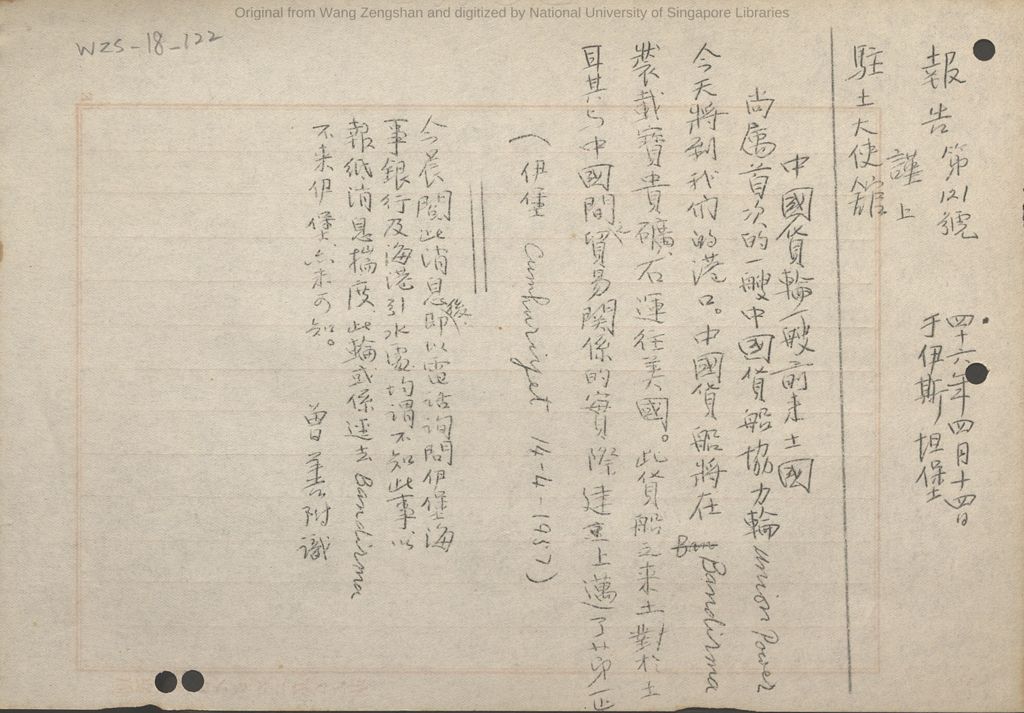 Original from Wang Zengshan and digitized by National University of Singapore Libraries
WZS-18-122
報告第121號
四十六年四月十四日
于伊斯坦堡
謹上
駐土大使館
中國貨輪一艘前來土國
尚屬首次的一艘中國貨船協力輪 Union Power
今天將到我们的港口。中國貨船將在 Bandirma
裝載寶貴礦石運往美國。此貨船之來土對於土
耳其与中國間貿易関係的實際建立上邁了第一步
(伊堡 Cumhuriyet 14-4-1957)
今晨閱此消息後即以電話詢問伊堡海
事銀行及海港引水處均謂不知此事以
報紙消息揣度此輪或係逕去 Bandirma
不來伊堡亦未可知。
曾善附識